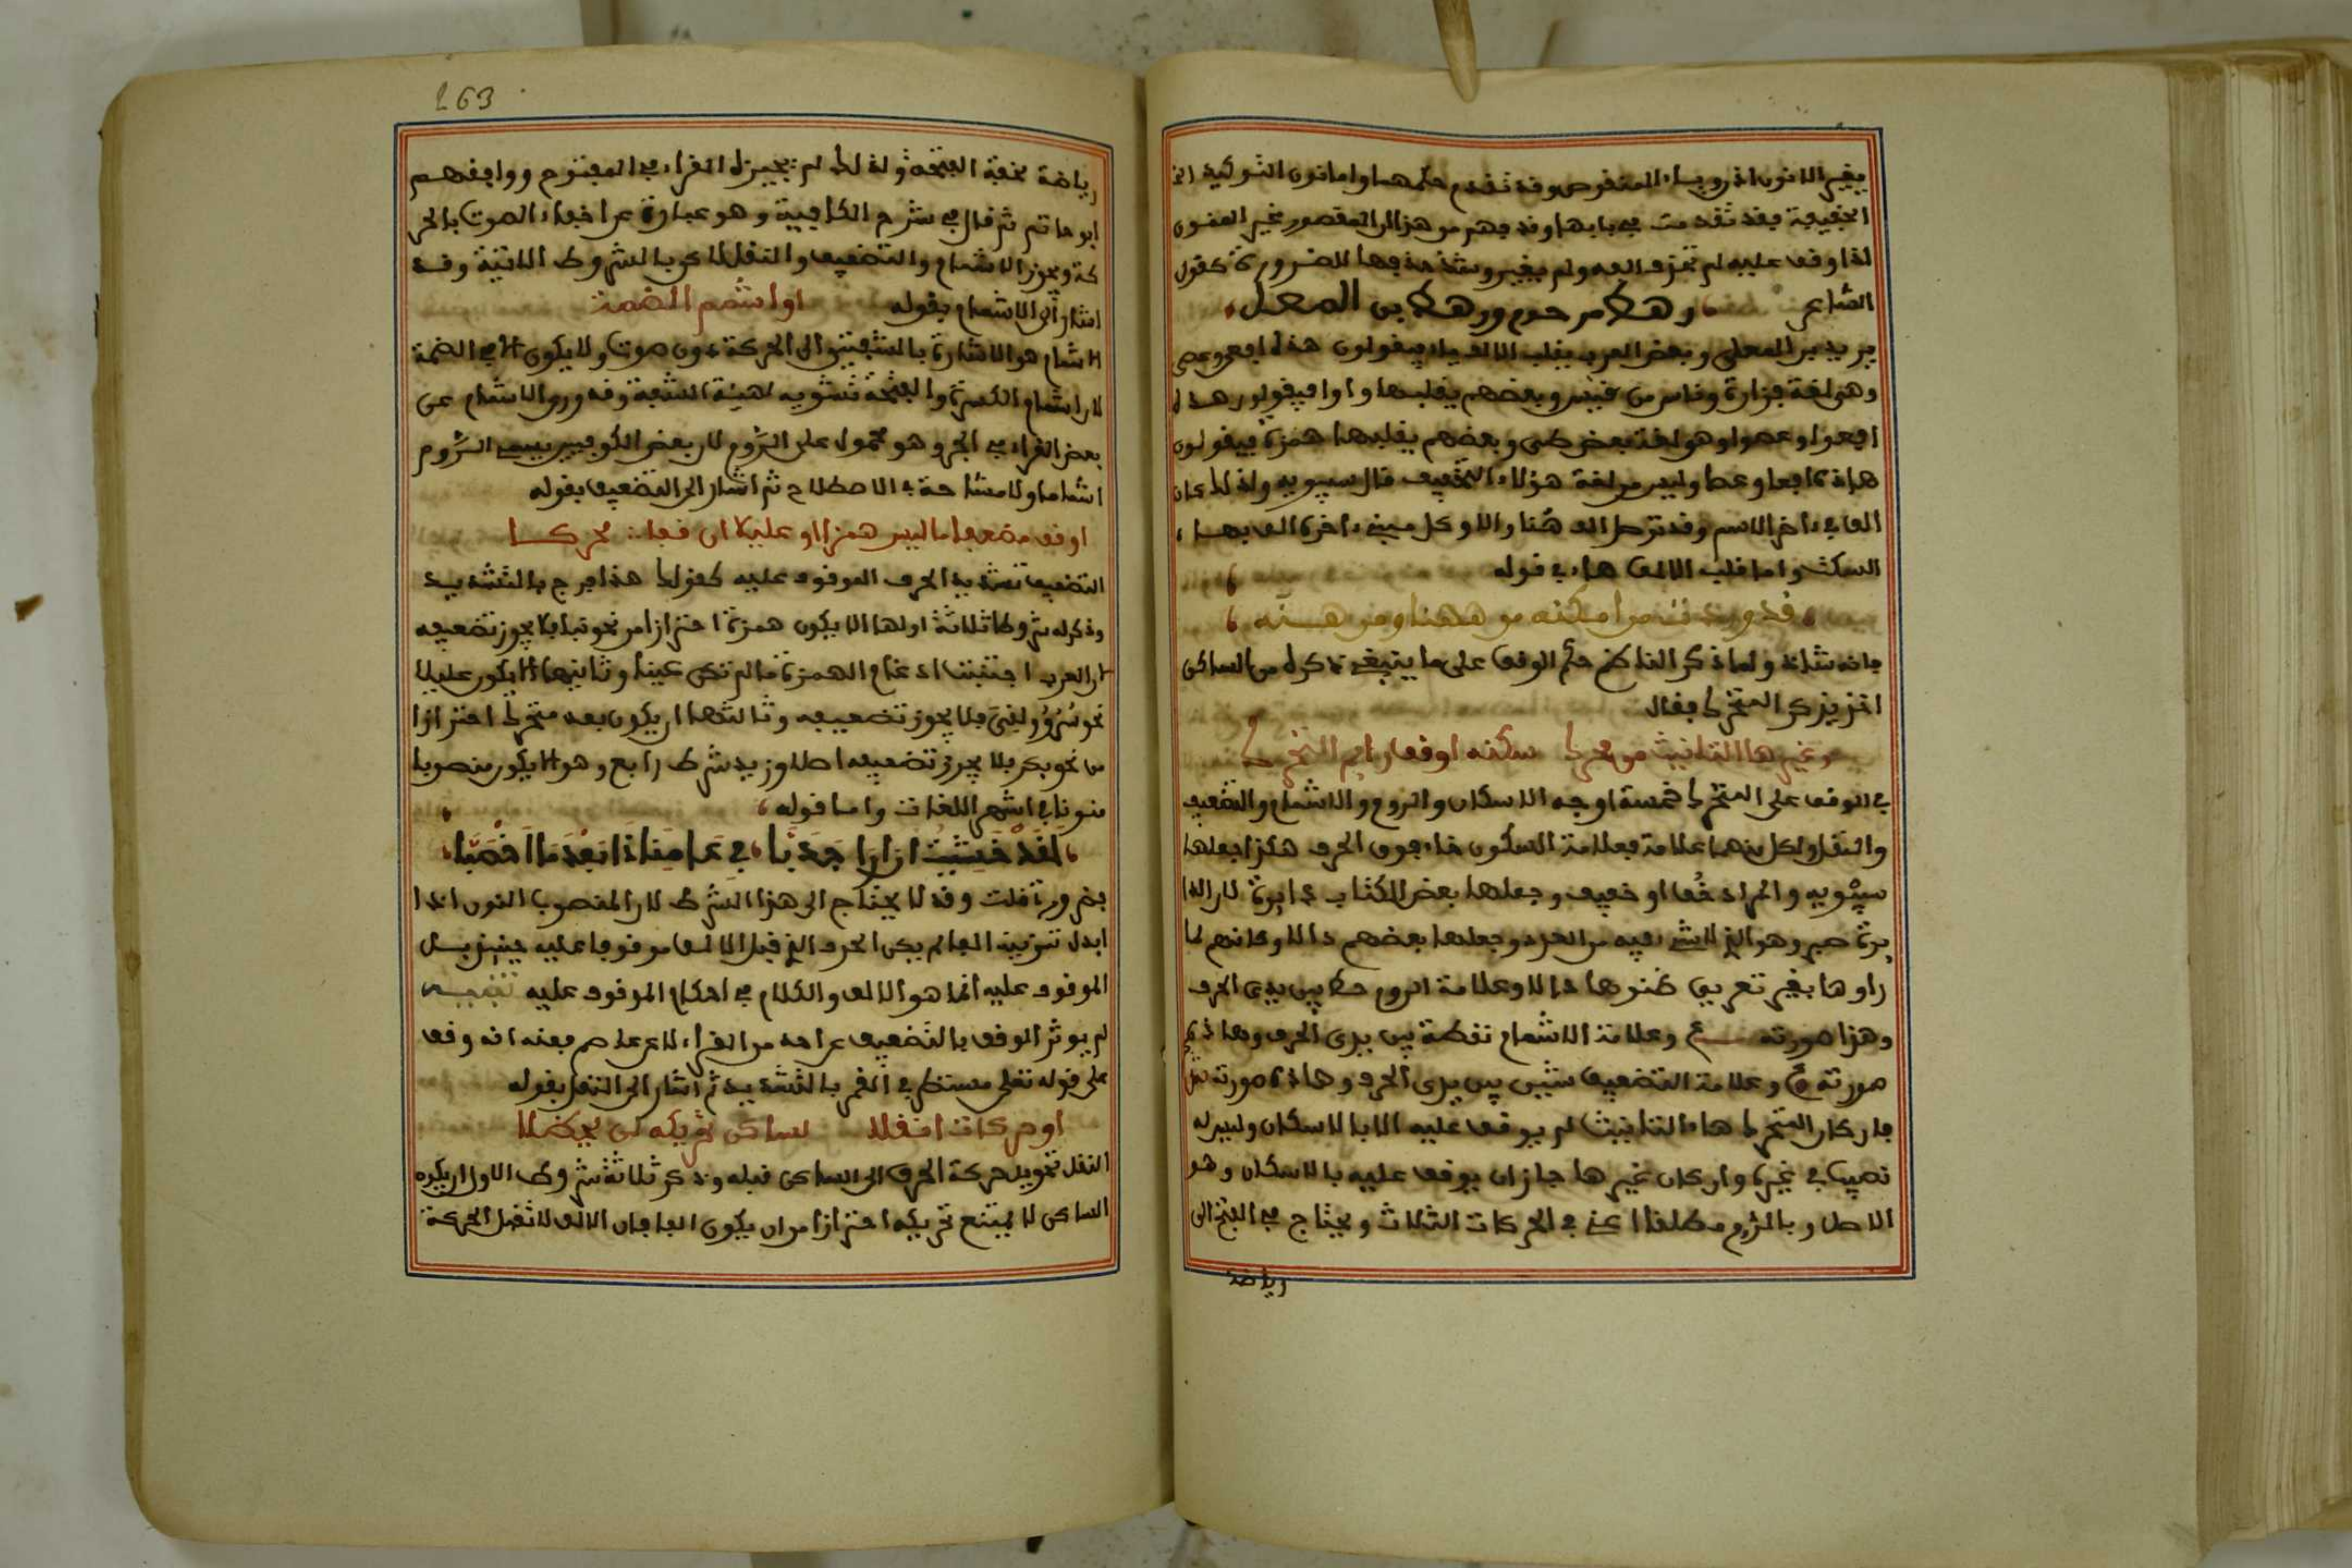 بغير الاذوين اخر وبياء المنقوص وقد تقدم حكمهما واما نون التوكيد
الخفيفة فقد تقدمت في بابها وقد فهم من هذا ان المقصور غير المنون
اذا وقف عليه لم تحذف الفه ولم يغير وشذ حذفها للضرورة كقول
الشاعر وهط مرحوم ورهط بن المعل
يريد بن المعلى وبعض العرب يقلب الالف ياء فيقولون هذا افعى وعصى
وهو لغة فزارة وناس من قيس وبعضهم يقلبها واوا فيقولون هذا
افعوا وعصوا وهو لغة بعض طى وبعضهم يقلبها همزة فيقولون
هاذه افعا وعصا وليس من لغة هؤلاء التخفيف قال سيبويه ولذلك كان
الفا في ءاخر الاسم وقد توصل الف هنا والاو كل مبني ءاخره الف بهاء
السكت واما قلب الالف هاء في قوله
قد وردت من امكنه من ههنا ومن هنه
فانه شاذ ولما ذكر الناظم حكم الوقف على ما ينبغي ذكره من الساكن
اخذ يذكر المتحرك فقال
وغيرها التانيث من محرك سكنه اوقف رايم التحرك
في الوقف على المتحرك خمسة اوجه الاسكان والروم والاشمام والتضعيف
والنقل ولكل منها علامة فعلامة السكون خاء فوق الحرف هكذا جعلها
سيبويه والمراد خف او خفيف وجعلها بعض الكتاب دايرة لان الدا
يرة صبر وهو الذي لا شيء فيه من العدد وجعلها بعضهم دالا وكانهم لما
راوها بغير تعريف ظنوها دالا وعلامة الروم خط بين يدى الحرف
وهذا صورته وعلامة الاشمام نقطة بين يدى الحرف وهاذه
صورته وعلامة التضعيف شين بين يدى الحرف وهاذه صورته
فان كان المتحرك هاء التانيث لم يوقف عليه الا بالاسكان وليس له
نصيب في غيره وان كان غيرها جاز ان يوقف عليه بالاسكان وهو
الاصل وبالروم مطلقا اعني في الحركات الثلاث ويحتاج في الفتح الى
رياضة
263
رياضة لخفة الفتحة ولذلك لم يجيزه الفراء في المفتوح ووافقهم
ابو حاتم ثم قال في شرح الكافية وهو عبارة عن اخفاء الصوت بالحر
كة ويجوز الاشمام والتضعيف والنقل لاكن بالشروط الاتية وقد
اشار الى الاشمام بقوله او اشمم الضمة
الاشمام هو الاشارة بالشفتين الى الحركة دون صوت ولا يكون الا في الضمة
لان اشمام الكسرة والفتحة تشويه لهيئة الشفة وقد ورد الاشمام عن
بعض القراء في الجر وهو محمول على الروم لان بعض الكوفيين يسمى الروم
اشماما ولا مشاحة في الاصطلاح ثم اشار الى التضعيف بقوله
او قف مضعفا ما ليس همزا او عليلا ان قفا محركا
التضعيف تشديد الحرف الموقوف عليه كقولك هذا فرج بالتشديد
وذكر له شروطا ثلاثة اولها الا يكون همزة احترازا من نحو نبا فلا يجوز تضعيفه
لان العرب اجتنبت ادغام الهمزة ما لم تكن عينا وثانيها الا يكون عليلا
نحو سرو ولقى فلا يجوز تضعيفه وثالثها ان يكون بعد متحرك احترازا
من نحو بكر فلا يجوز تضعيفه اصلا وزيد شرط رابع وهو الا يكون منصوبا
منونا في اشهر اللغات واما قوله
لقد خشيت ان ارا جدبا في عامنا ذا بعدما اخصبا
فضرورة قلت وقد لا يحتاج الى هذا الشرط لان المنصوب المنون اذا
ابدل تنوينه الفا لم يكن الحرف الذي قبل الالف موقوفا عليه حينئذ بل
الموقوف عليه انما هو الالف والكلام في احكام الموقوف عليه تنبيه
لم يوثر الوقف بالتضعيف عن احد من القراء الا عن عاصم فعنه انه وقف
على قوله تعلى مستطر في القمر بالتشديد ثم اشار الى النقل بقوله
او حركات انقلا لساكن تحريكه لن يحظلا
النقل تحويل حركة الحرف الى الساكن قبله وذكر ثلاثة شروط الاول ان يكون
الساكن لا يمتنع تحريكه احترازا من ان يكون الفا فان الالف لا تقبل الحركة